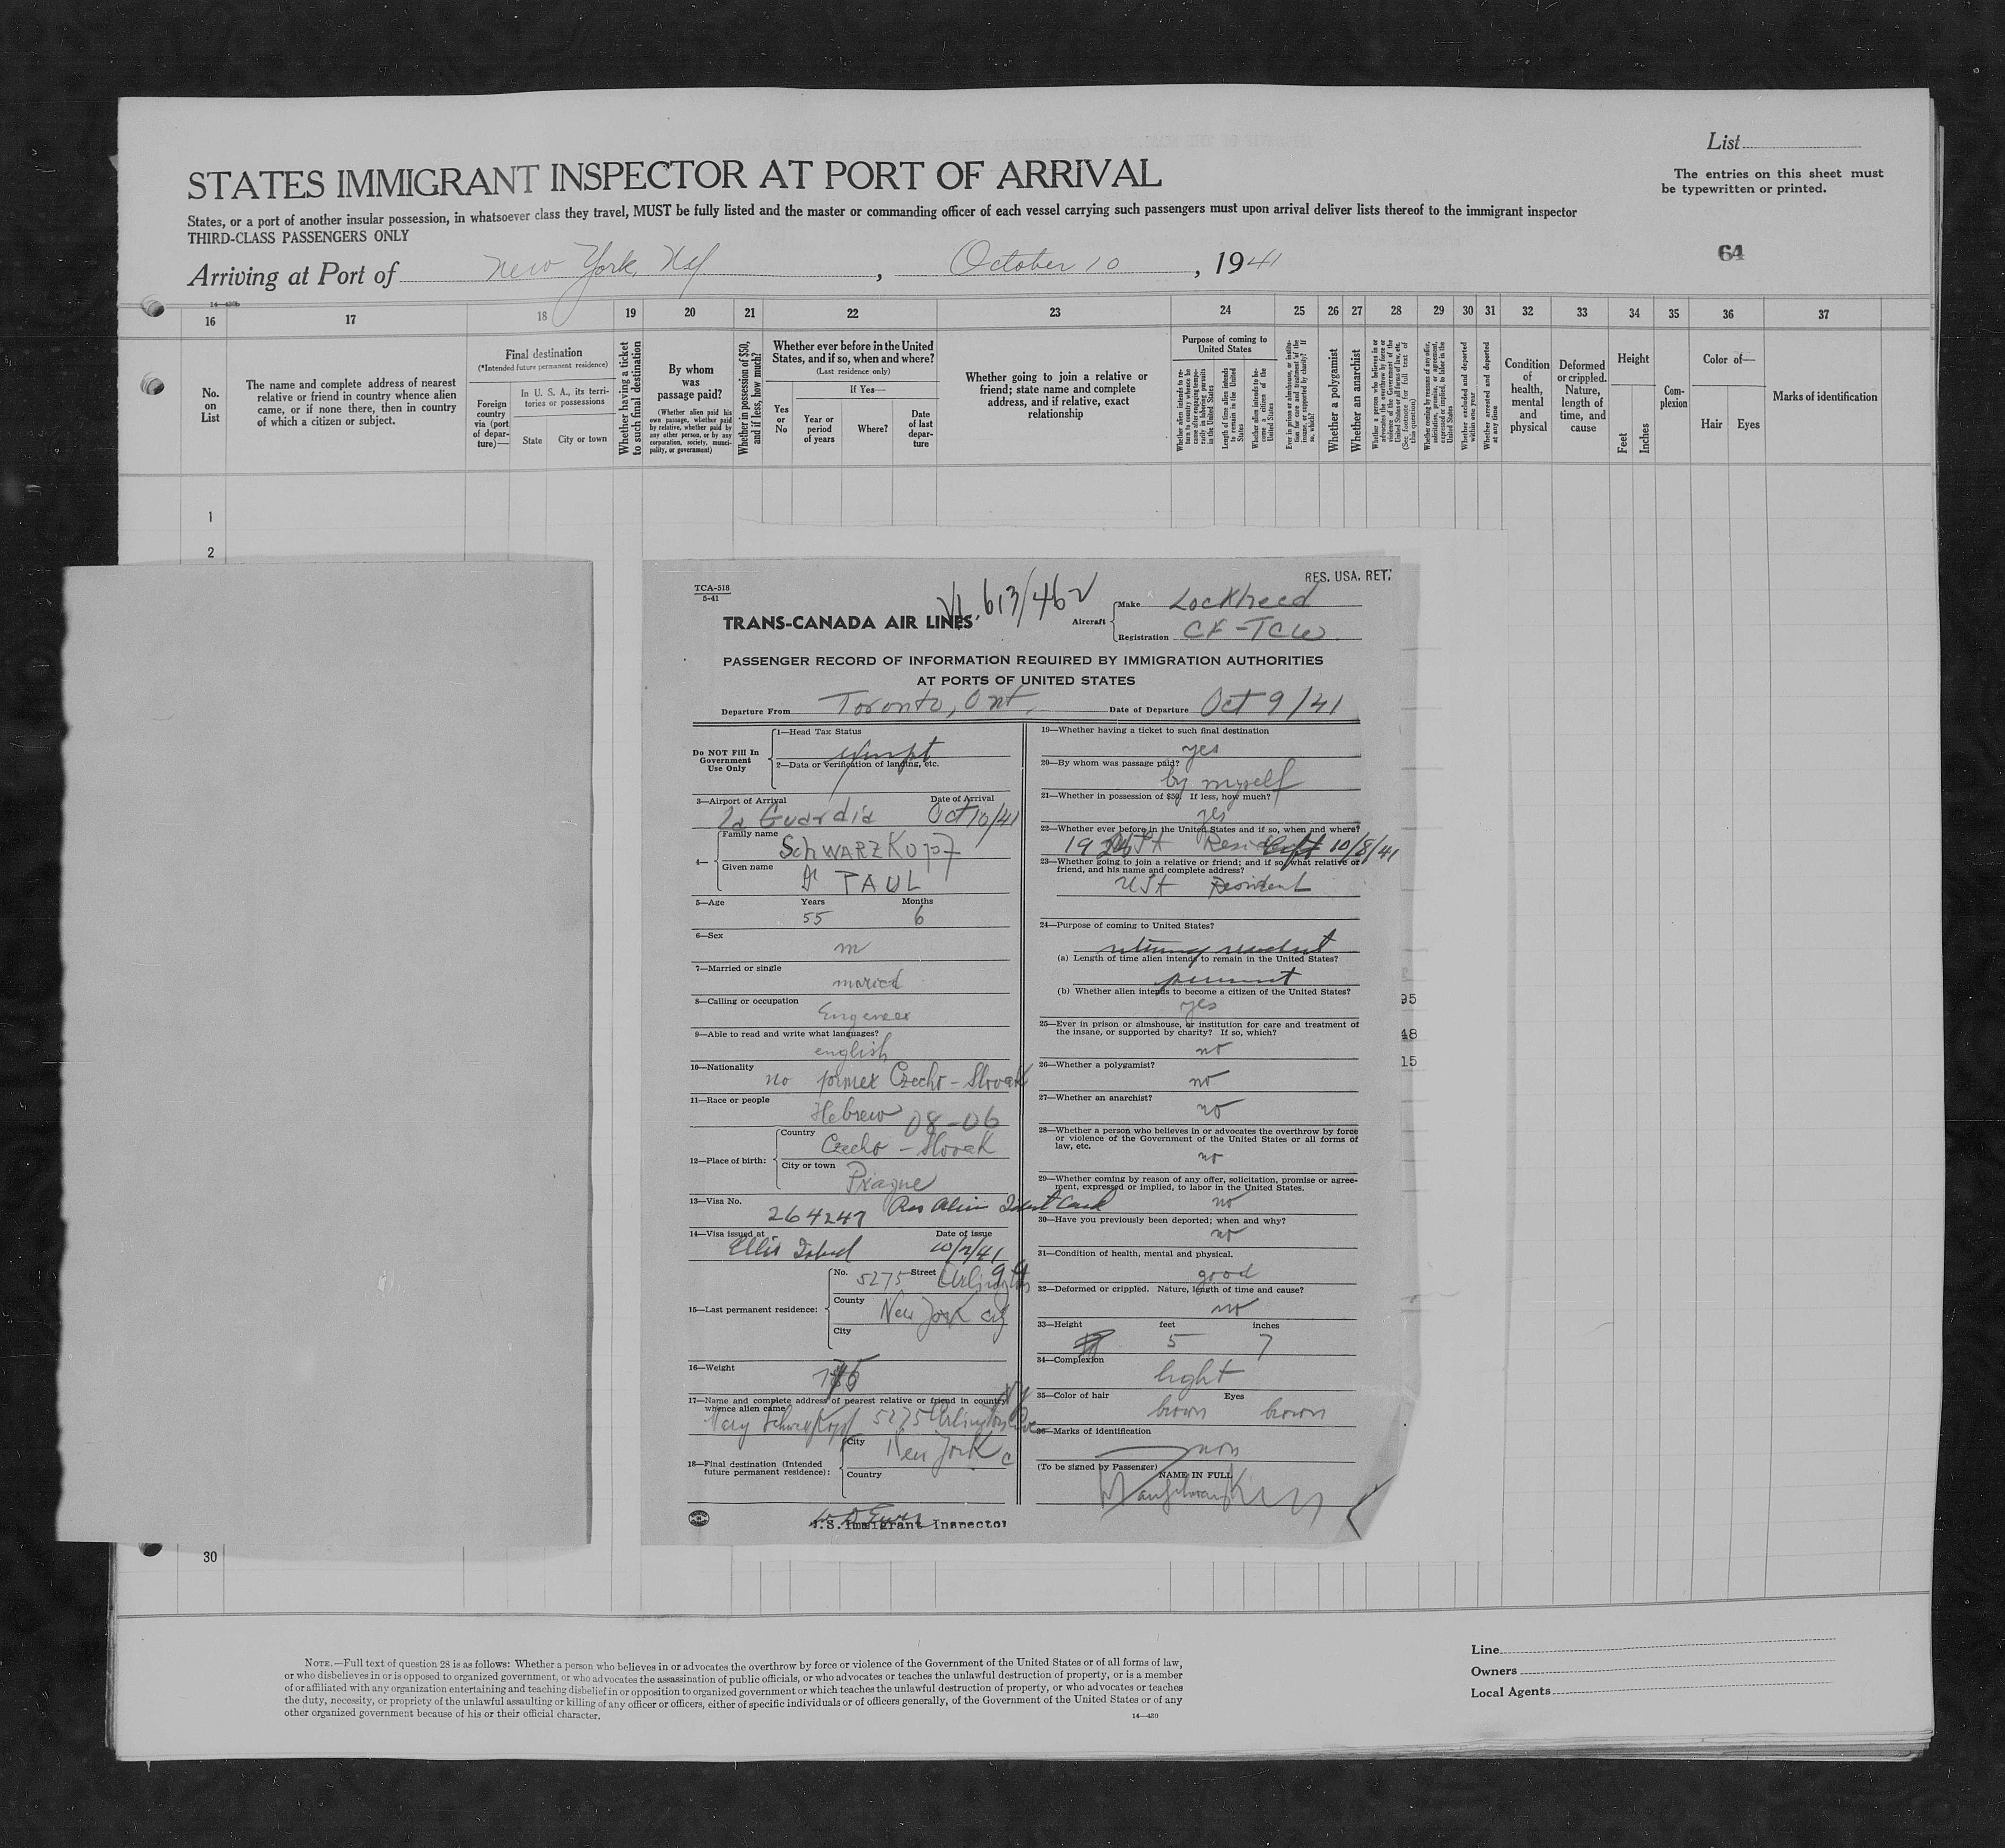 List
The entries on this sheet must
be typewritten or printed.
STATES IMMIGRANT INSPECTOR AT PORT OF ARRIVAL
States, or a port of another insular possession, in whatsoever class they travel, MUST be fully listed and the master or commanding officer of each vessel carrying such passengers must upon arrival deliver lists thereof to the immigrant inspector
THIRD-CLASS PASSENGERS ONLY
64
Arriving at Port of New York, NY, October 10, 1941
14-430b
16 17 18 19 20 21 22 23 24 25 26 27 28 29 30 31 32 33 34 35 36 37
No. on List
The name and complete address of nearest relative or friend in country whence alien came, or if none there, then in country of which a citizen or subject.
Final destination
(*Intended future permanent residence)
Foreign country via (port of departure)—
In U. S. A., its territories or possessions
State
City or town
Whether having a ticket to such final destination
By whom was passage paid?
(Whether alien paid his own passage, whether paid by relative, whether paid by any other person, or by any corporation, society, municipality, or government)
Whether in possession of $50, and if less, how much?
Whether ever before in the United States, and if so, when and where?
(Last residence only)
If Yes—
Yes or No
Year or period of years
Where?
Date of last departure
Whether going to join a relative or friend; state name and complete address, and if relative, exact relationship
Purpose of coming to United States
Length of time alien intends to remain in the United States
Whether alien intends to become a citizen of the United States
Whether a polygamist
Whether an anarchist
Whether excluded and deported within one year
Whether arrested and deported at any time
Condition of health, mental and physical
Deformed or crippled. Nature, length of time, and cause
Height
Feet
Inches
Complexion
Color of—
Hair
Eyes
Marks of identification
1
2
30
TCA-518
5-41
RES. USA. RET.
613/462
TRANS-CANADA AIR LINES
Aircraft
Make Lockheed
Registration CF-TCW
PASSENGER RECORD OF INFORMATION REQUIRED BY IMMIGRATION AUTHORITIES
AT PORTS OF UNITED STATES
Departure From Toronto, Ont. Date of Departure Oct 9/41
Do NOT Fill In Government Use Only
1—Head Tax Status
exempt
2—Data or verification of landing, etc.
3—Airport of Arrival Date of Arrival
La Guardia Oct 10/41
4— Family name
SCHWARZKOPF
Given name
Dr PAUL
5—Age Years Months
55 6
6—Sex
m
7—Married or single
maried
8—Calling or occupation
Engeneer
9—Able to read and write what languages?
english
10—Nationality
no former Czecho-Slovak
11—Race or people
Hebrew 08-06
12—Place of birth:
Country
Czecho-Slovak
City or town
Prague
13—Visa No.
264247 Res Alien Ident Card
14—Visa issued at Date of issue
Ellis Island 10/2/41
15—Last permanent residence:
No. 5275 Street Arlington
County
New York city
City
16—Weight
17—Name and complete address of nearest relative or friend in country whence alien came
Mary Schwarzkopf 5275 Arlington Ave
18—Final destination (Intended future permanent residence):
City New York c
Country
U.S. Immigrant Inspector
19—Whether having a ticket to such final destination
yes
20—By whom was passage paid?
by myself
21—Whether in possession of $50. If less, how much?
yes
22—Whether ever before in the United States and if so, when and where?
10/8/41
23—Whether going to join a relative or friend; and if so what relative or friend, and his name and complete address?
USA Resident
24—Purpose of coming to United States?
returning resident
(a) Length of time alien intends to remain in the United States?
permanent
(b) Whether alien intends to become a citizen of the United States?
yes
25—Ever in prison or almshouse, or institution for care and treatment of the insane, or supported by charity? If so, which?
no
26—Whether a polygamist?
no
27—Whether an anarchist?
no
28—Whether a person who believes in or advocates the overthrow by force or violence of the Government of the United States or all forms of law, etc.
no
29—Whether coming by reason of any offer, solicitation, promise or agreement, expressed or implied, to labor in the United States.
no
30—Have you previously been deported; when and why?
no
31—Condition of health, mental and physical.
good
32—Deformed or crippled. Nature, length of time and cause?
no
33—Height feet inches
5 7
34—Complexion
light
35—Color of hair Eyes
brown brown
36—Marks of identification
non
(To be signed by Passenger)
NAME IN FULL
95
48
15
NOTE.—Full text of question 28 is as follows: Whether a person who believes in or advocates the overthrow by force or violence of the Government of the United States or of all forms of law,
or who disbelieves in or is opposed to organized government, or who advocates the assassination of public officials, or who advocates or teaches the unlawful destruction of property, or is a member
of or affiliated with any organization entertaining and teaching disbelief in or opposition to organized government or which teaches the unlawful destruction of property, or who advocates or teaches
the duty, necessity, or propriety of the unlawful assaulting or killing of any officer or officers, either of specific individuals or of officers generally, of the Government of the United States or of any
other organized government because of his or their official character.
14—430
Line
Owners
Local Agents